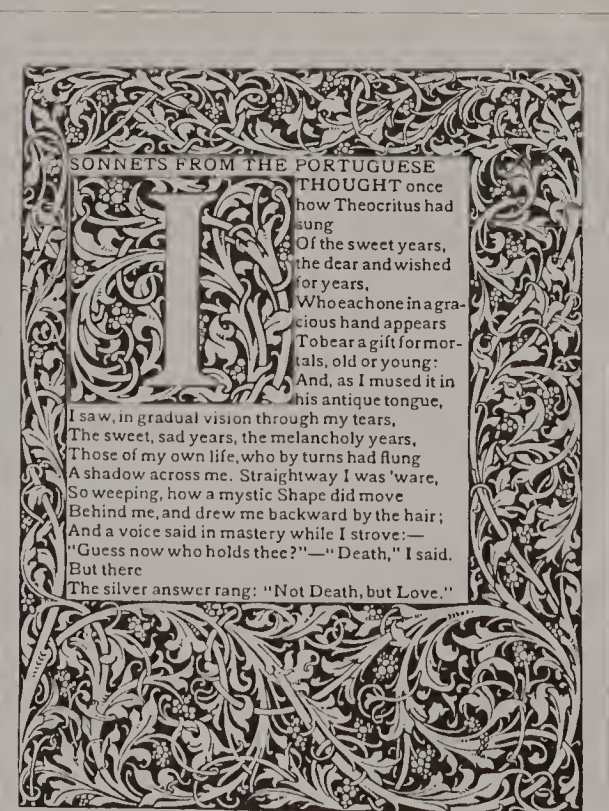 SONNETS FROM THE PORTUGUESE
I THOUGHT once
how Theocritus had
sung
Of the sweet years,
the dear and wished
for years,
Who each one in a gra-
cious hand appears
To bear a gift for mor-
tals, old or young:
And, as I mused it in
his antique tongue,
I saw, in gradual vision through my tears,
The sweet, sad years, the melancholy years,
Those of my own life, who by turns had flung
A shadow across me. Straightway I was 'ware,
So weeping, how a mystic Shape did move
Behind me, and drew me backward by the hair;
And a voice said in mastery while I strove:—
"Guess now who holds thee?"—"Death," I said.
But there
The silver answer rang: "Not Death, but Love."